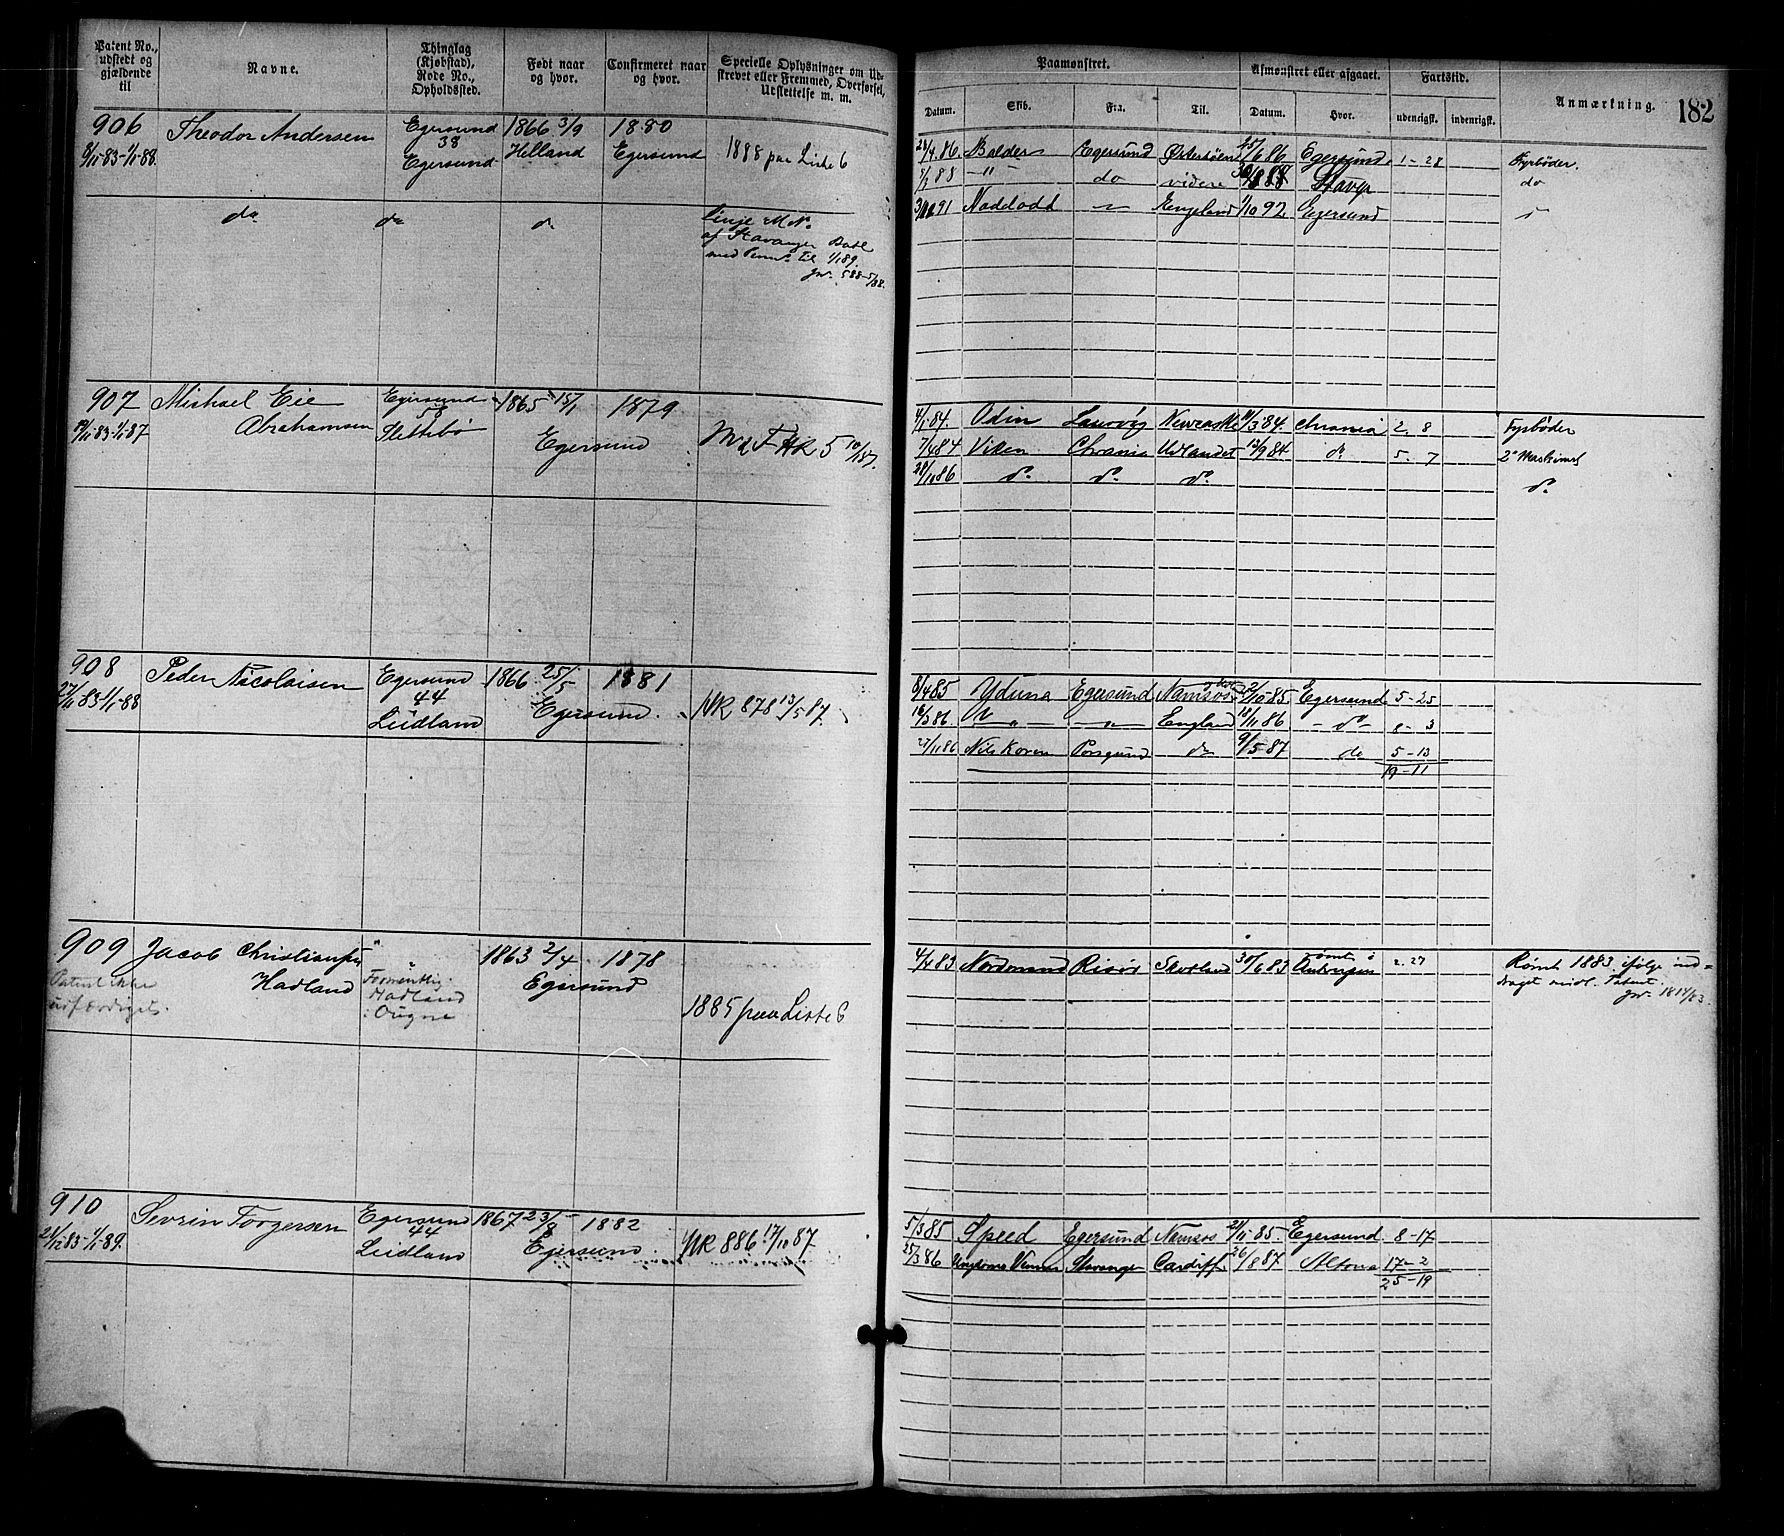 Patent No., udstedt og gjældende til
Navne.
Thinglag (Kjøbstad), Rode No., Opholdssted.
Født naar og hvor.
Confirmeret naar og hvor.
Specielle Oplysninger om Udskrevet eller Fremmed, Overførsel, Udslettelse m. m.
Paamønstret.
Datum.
Skib.
Fra.
Til.
Afmønstret eller afgaaet.
Datum.
Hvor.
Fartstid.
udenrigsk.
indenrigsk.
Anmærkning.
182
906
8/11-83-1/1-88.
Theodor Andersen
Egersund
38
Egersund
1866 3/9
Helland
1880
Egersund
1888 paa Liste 6
28/4.86. Balder Egersund 15/6 86 Egersund. 1-28 Fyrbøder.
-"- do videre 888 Stavgr do
91 Naddodd England 1/10 92. Egersund
do do do
af Stavanger
907
19/11-83-1/1-87
Mikael Eie
Abrahamsen
Egersund
58
Slettebø
1865 15/1
Egersund
1879
4/1.84. Odin Laurvig 11/3 84. Chrania 2. 8 Fyrbøder
7/4 84 Viken Chrania Udlandet 12/9 84 do 5. 7
28/10 86 do do do do
908
27/11 83-1/1-88
Peder Nicolaisen
Egersund
44
Leidland
1866 25/5
Egersund.
1881
NR 878 13/5 87.
8/4 85 Yduna Egersund Namsos 2/10-85. Egersund 5-25
16/3 86. " England 18/11 86 do 8-3
27/11 86 Nils Koren Porsgrund do 9/5 87 do 5-13
19-11
909
Patent ikke
udfærdiget.
Jacob Christiansen
Hadland
Formentlig
Hadland
i Ougne
1863 2/4
Egersund
1878
1885 paa Liste 6
4/4 83 Nordmand Risør Skotland 30/6 83 rømt i Antwerpen 2.27
Rømt 1883, ifølge ind=
draget midl. Patent.
910
21/12-83-1/1-89.
Sevrin Torgersen
Egersund
44
Leidland
1867 23/8
Egersund.
1882
NR 886 17/10 87
5/3 85 Speed Egersund Namsos 21/11-85. Egersund 8-17
25/3 86 Stavanger Cardiff 26/8 87 Altona 17-2
25-19